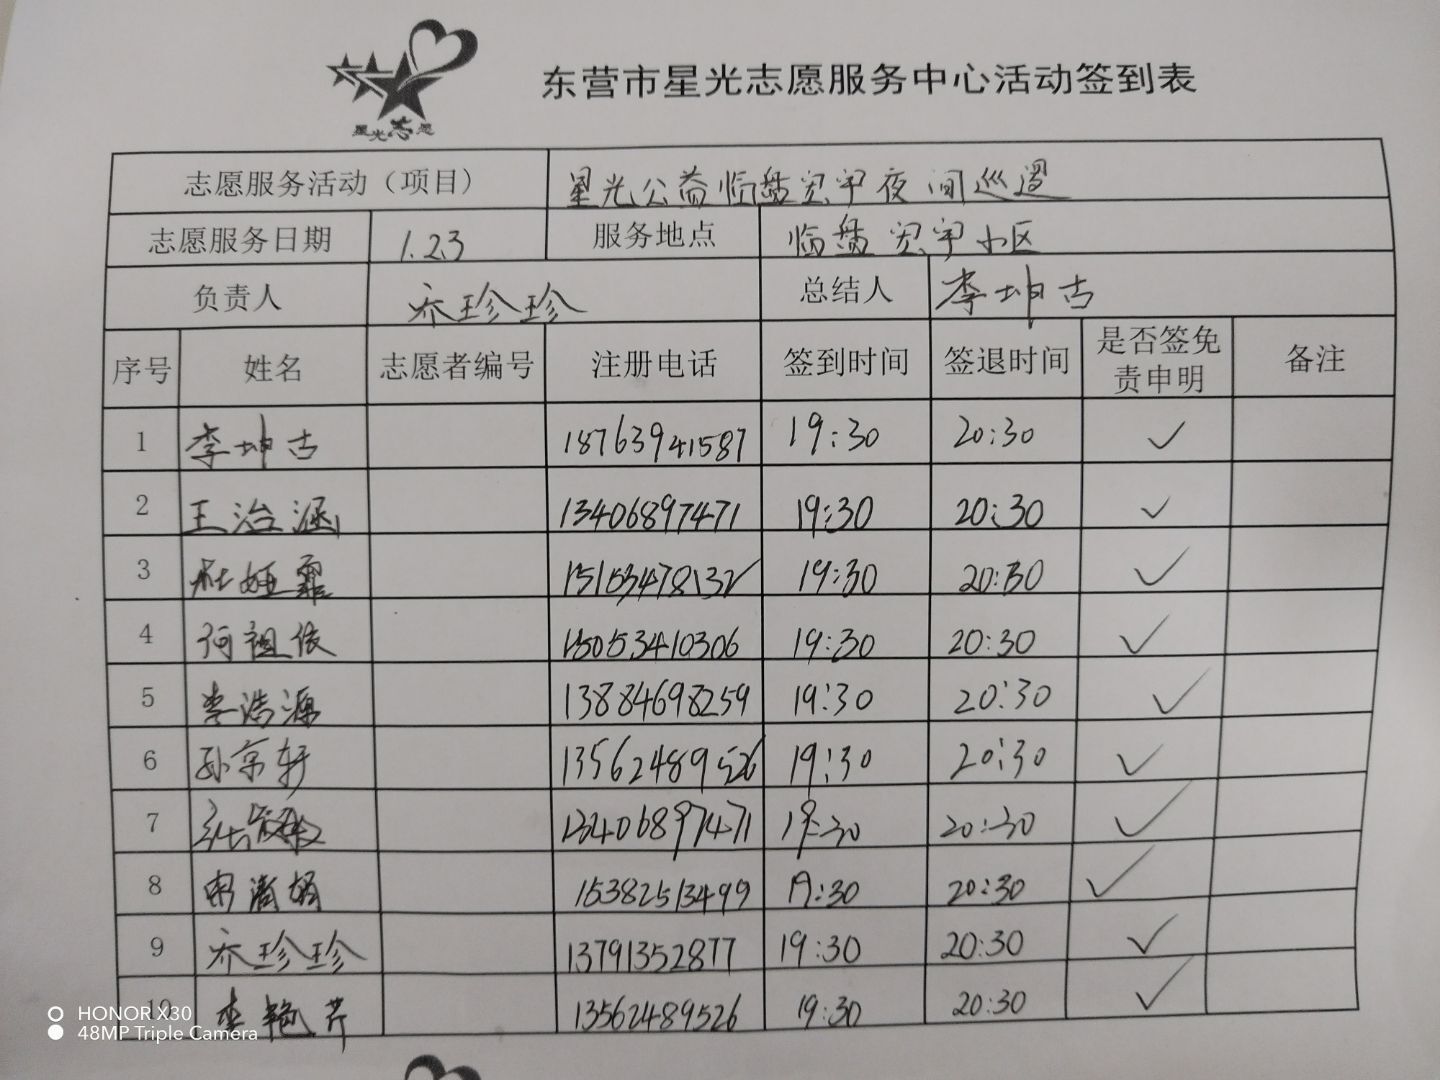 星光志愿
东营市星光志愿服务中心活动签到表
志愿服务活动（项目） 星光公益临盘宽宇夜间巡逻
志愿服务日期 1.23 服务地点 临盘宽宇小区
负责人 乔珍珍 总结人 李坤古
序号 姓名 志愿者编号 注册电话 签到时间 签退时间 是否签免责申明 备注
1 李坤古 18763941587 19:30 20:30 ✓
2 王治涵 13406897471 19:30 20:30 ✓
3 杜娅霏 15153478132 19:30 20:30 ✓
4 何祖依 15053410306 19:30 20:30 ✓
5 李浩源 13884698259 19:30 20:30 ✓
6 孙京轩 13562489526 19:30 20:30 ✓
7 13406897471 19:30 20:30 ✓
8 15382513499 19:30 20:30 ✓
9 乔珍珍 13791352877 19:30 20:30 ✓
10 李艳芹 13562489526 19:30 20:30 ✓
HONOR X30
48MP Triple Camera